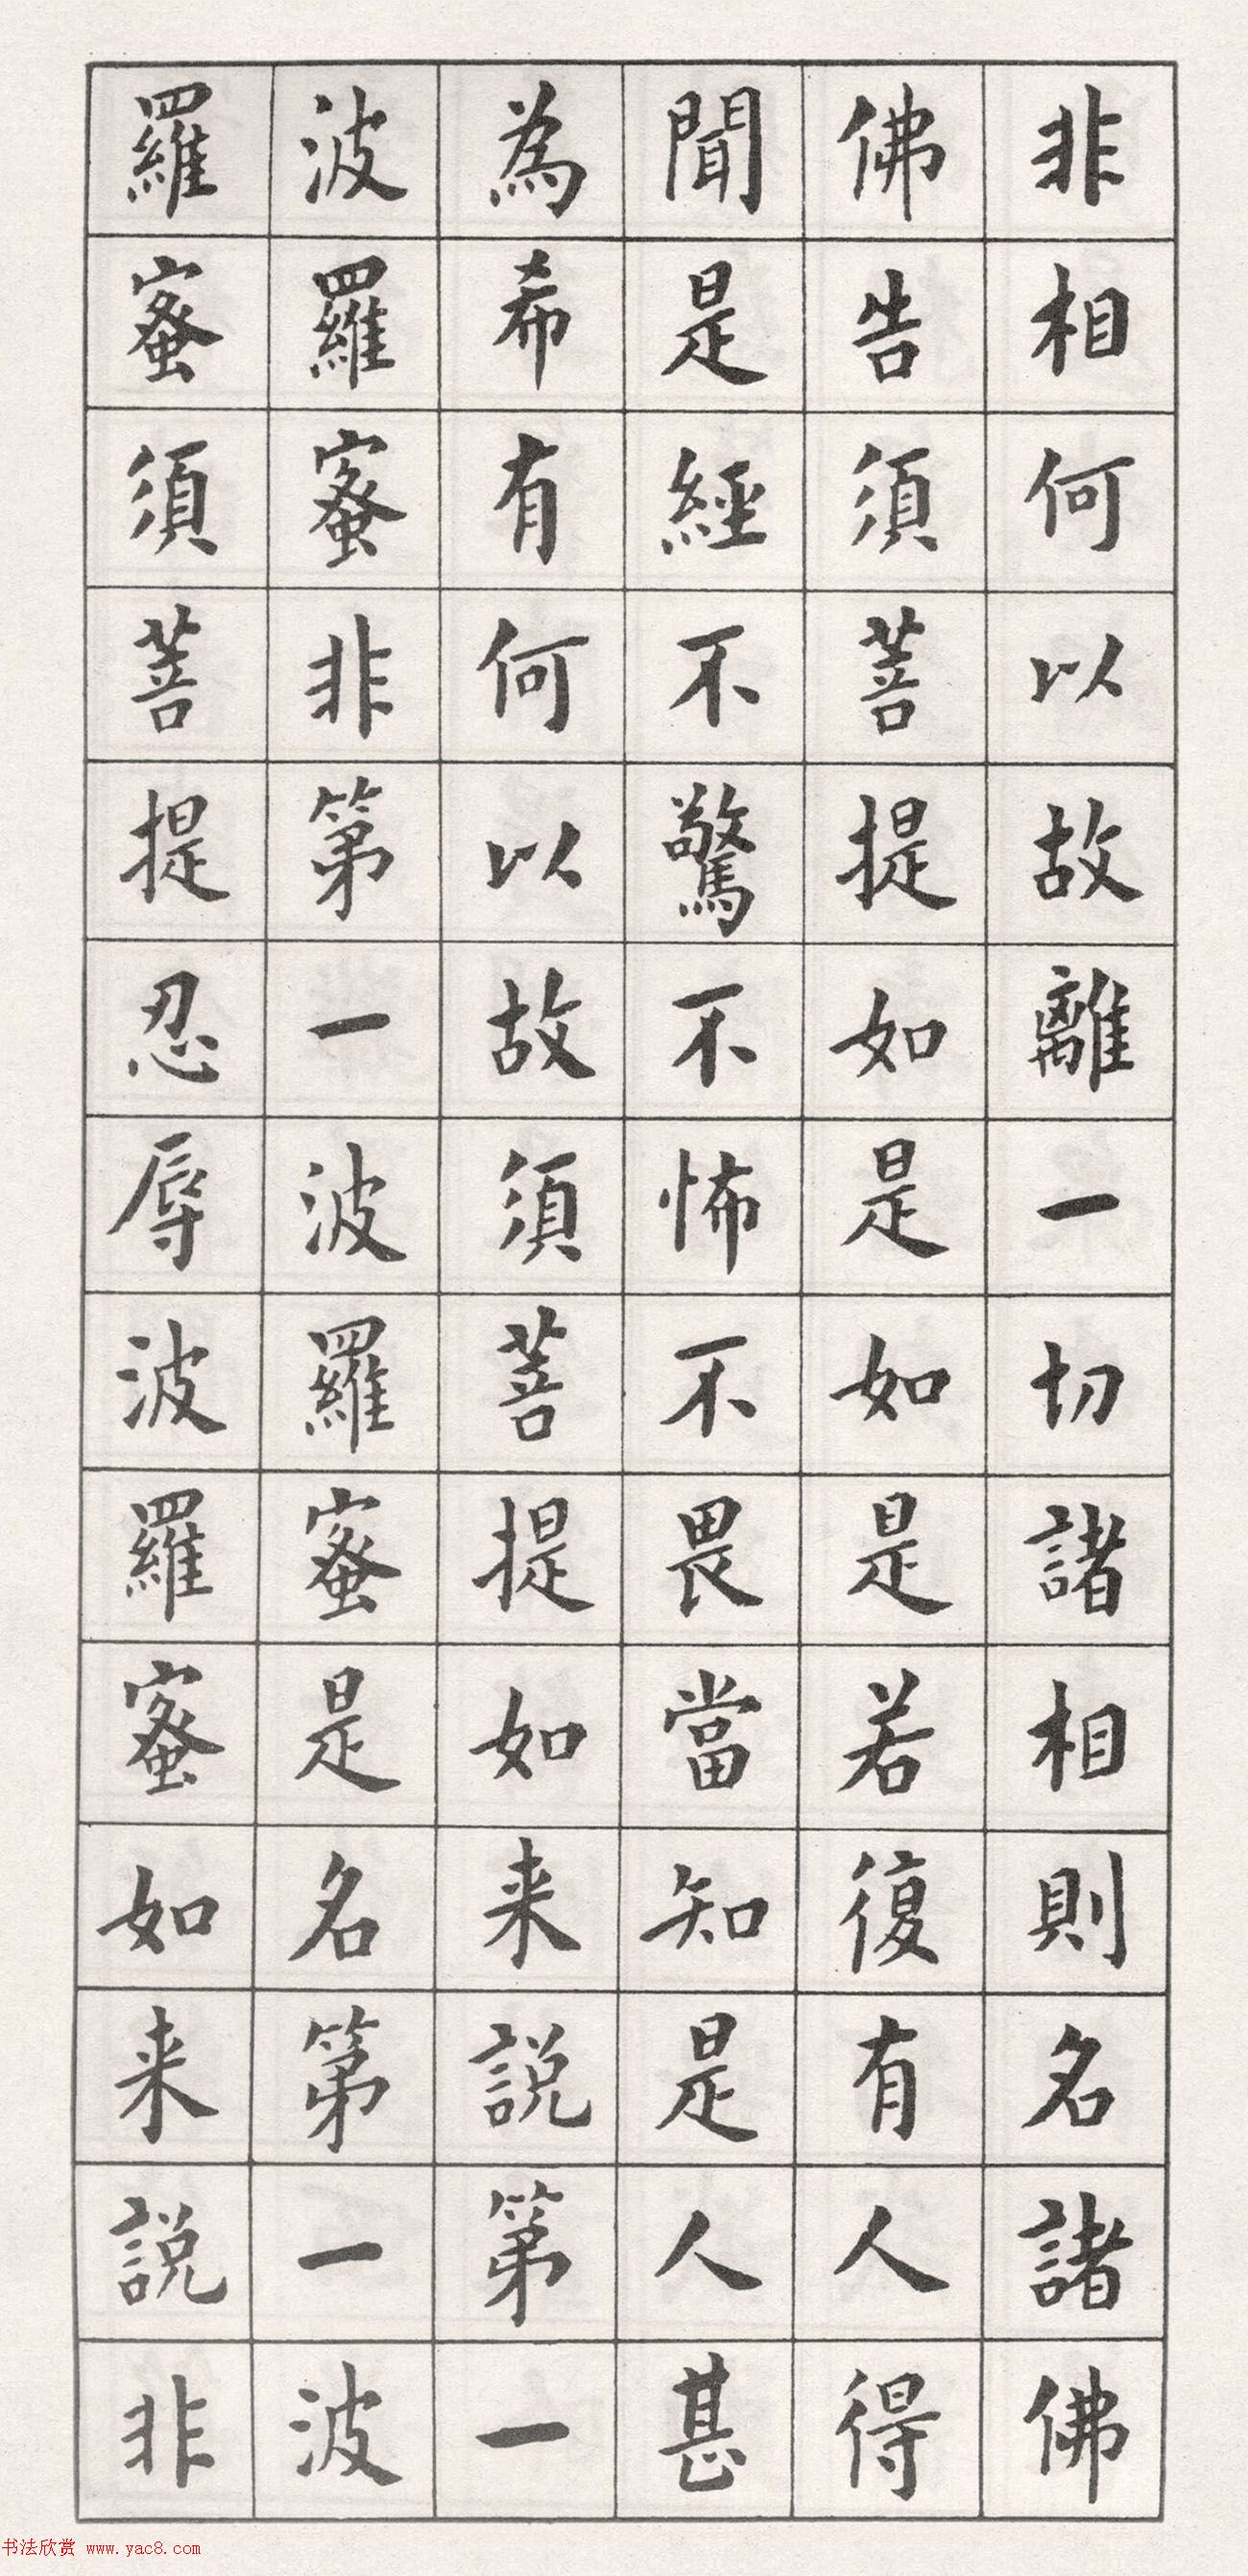 非相何以故離一切諸相則名諸佛
佛告須菩提如是如是若復有人得
聞是經不驚不怖不畏當知是人甚
為希有何以故須菩提如来說第一
波羅蜜非第一波羅蜜是名第一波
羅蜜須菩提忍辱波羅蜜如来說非
书法欣赏 www.yac8.com